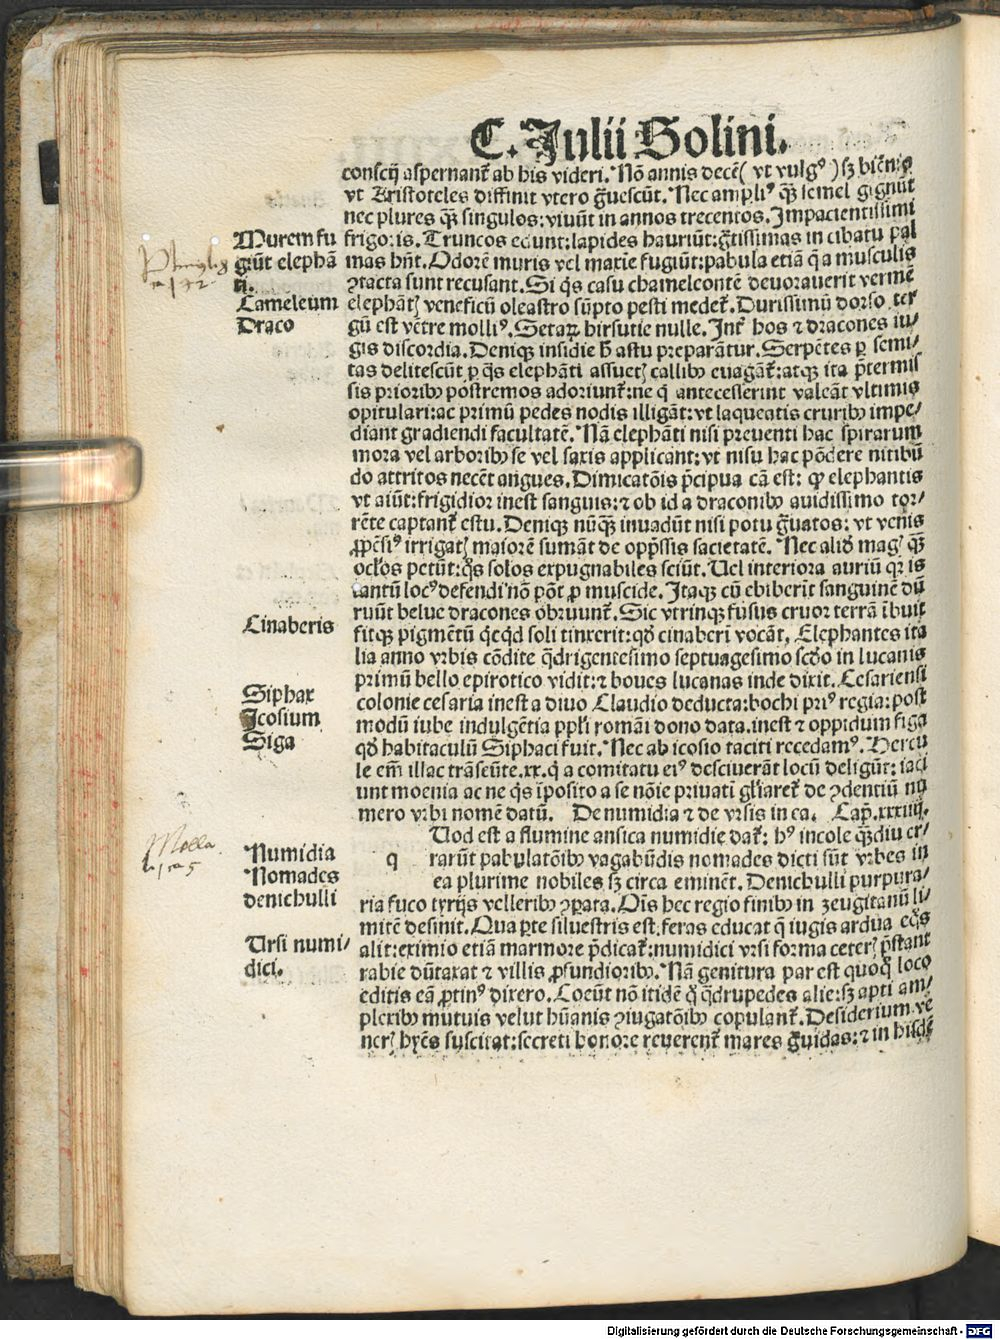 C. Julii Solini.
conscij aspernant᷑ ab his videri. Nõ annis decẽ( vt vulgꝰ ) sꝫ biẽnio
vt Aristoteles diffinit vtero g̃uescũt. Nec ampliꝰ qᷓꝫ semel gignũt
nec plures qᷓꝫ singulos: viuũt in annos trecentos. Impacientissimi
frigoris. Truncos edunt: lapides hauriũt: g̃tissimas in cibatu pal
mas hñt. Odorẽ muris vel maxie fugiũt: pabula etiã q̃ a musculis
ꝯtacta sunt recusant. Si q̇s casu chamelcontẽ deuorauerit vermẽ
elephãtꝭ veneficũ oleastro sũpto pesti medet᷑. Durissimũ dorso ter
gũ est vẽtre molliꝰ. Setaꝝ hirsutie nulle. Int᷑ hos ⁊ dracones iu/
gis discordia. Deniqꝫ insidie h̃ astu preparãtur. Serpẽtes ꝑ semi/
tas delitescũt ꝑ q̃s elephãti assuetꝭ callibꝫ euagãt᷑: atqꝫ ita p̃termis
sis prioribꝫ postremos adoriunt᷑: ne q̇ antecesserint valeãt vltimis
opitulari: ac primũ pedes nodis illigãt: vt laqueatis cruribꝫ impe/
diant gradiendi facultatẽ. Nã elephãti nisi preuenti hac spirarum
mora vel arboribꝫ se vel saxis applicant: vt nisu hac põdere nitibũ
do attritos necẽt angues. Dimicatõis p̃cipua cã est: ꝙ elephantis
vt aiũt: frigidior inest sanguis: ⁊ ob id a draconibꝫ auidissimo tor/
rẽte captant᷑ estu. Deniqꝫ nũqᷓꝫ inuadũt nisi potu g̃uatos: vt venis
ꝓpẽsiꝰ irrigatꝭ maiorẽ sumãt de opp̃ssis sacietatẽ. Nec aliđ magꝭ qᷓꝫ
ocl̃os petũt: q̃s solos expugnabiles sciũt. Vel interiora auriũ qꝛ is
tantũ locꝰ defendi nõ põt ꝓ muscide. Itaqꝫ cũ ebiberĩt sanguinẽ dũ
ruũt belue dracones obruunt᷑. Sic vtrinqꝫ fusus cruor terrã ĩbuit
fitqꝫ pigmẽtũ q̇cq̇d soli tinxerit: qđ cinaberi vocãt. Elephantes ita
lia anno vrbis cõdite q̃drigentesimo septuagesimo scđo in lucanis
primũ bello epirotico vidit: ⁊ boues lucanas inde dixit. Cesariensi
colonie cesaria inest a diuo Claudio deducta: bochi priꝰ regia: post
modũ iube indulgẽtia ppl̃i romãi dono data. inest ⁊ oppidum siga
qđ habitaculũ Siphaci fuit. Nec ab icosio taciti recedamꝰ. Hercu
le em̃ illac trãseũte .xx. q̇ a comitatu eiꝰ desciuerãt locũ deligũt: iaci
unt moenia ac ne q̇s ĩposito a se nõie priuatĩ gl̃iaret᷑ de ꝯdentiũ nu
mero vrbi nomẽ datũ. De numidia ⁊ de vrsis in ea. Cap̃. xxxiiij.
Vod est a flumine ansica numidie dat᷑: hꝰ incole qᷓꝫdiu er/
q rarũt pabulatõibꝫ vagabũdis nomades dicti sũt vrbes in
ea plurime nobiles sꝫ circa eminẽt. Denichulli purpura/
ria fuco tyrijs velleribꝫ ꝯpata. Ois hec regio finibꝫ in zeugitanũ li/
mitẽ desinit. Qua ꝑte siluestris est, feras educat q̃ iugis ardua eq̃s
alit: eximio etiã marmore p̃dicat᷑: numidici vrsi forma ceterꝭ p̃stant
rabie dũtaxat ⁊ villis ꝓfundioribꝫ. Nã genitura par est quoq̃ loco
editis eã ꝓtinꝰ dixero. Coeũt nõ itidẽ q̃ q̃drupedes alie: sꝫ apti am/
plexibꝫ mutuis velut hũanis ꝯiugatõibꝫ copulant᷑. Desiderium ve
nerꝭ hyẽs suscitat: secreti honore reuerent᷑ mares g̃uidas: ⁊ in hisdẽ
Murem fu
giũt elephã
ti.
Cameleum
Draco
Cinaberis
Siphax
Icosium
Siga
Numidia
Nomades
denichulli
Vrsi numi/
dici.
Digitalisierung gefördert durch die Deutsche Forschungsgemeinschaft - DFG